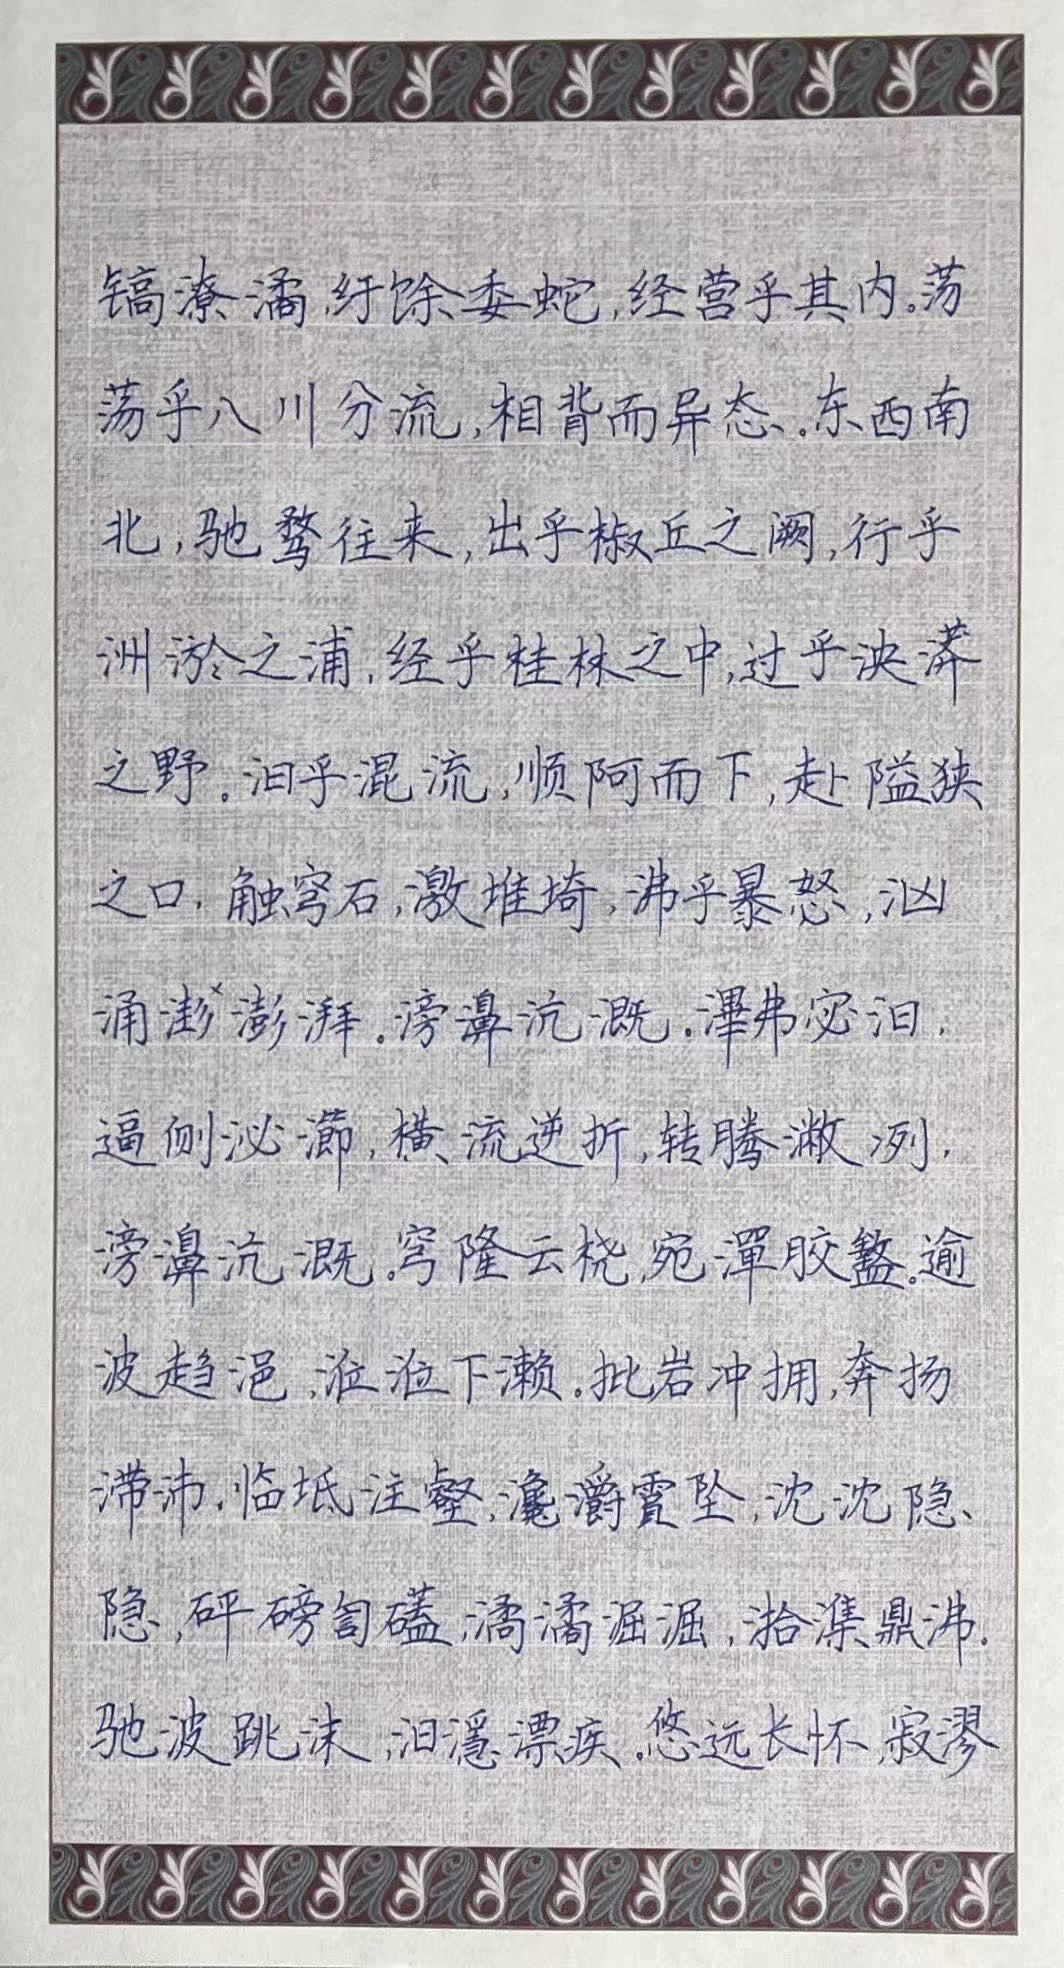 镐潦潏,纡馀委蛇,经营乎其内。荡
荡乎八川分流,相背而异态。东西南
北,驰骛往来,出乎椒丘之阙,行乎
洲淤之浦,经乎桂林之中,过乎泱漭
之野。汩乎混流,顺阿而下,赴隘狭
之口,触穹石,激堆埼,沸乎暴怒,汹
涌澎澎湃。滂濞沆溉。滭弗宓汩,
逼侧泌瀄,横流逆折,转腾潎冽,
滂濞沆溉。穹隆云桡,宛潬胶盭。逾
波趋浥,涖涖下濑。批岩冲拥,奔扬
滞沛,临坻注壑,瀺灂霣坠,沈沈隐
隐,砰磅訇礚,潏潏淈淈,湁潗鼎沸。
驰波跳沫,汩㶏漂疾。悠远长怀,寂漻